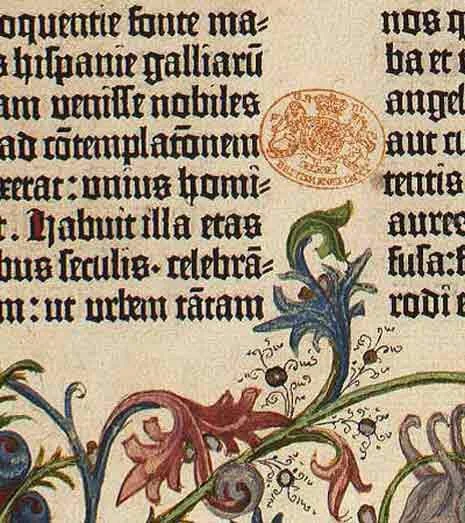 oquentie fonte ma⸗
s hispanie galliarū
am venisse nobiles
ad cōtemplatōnem
xerat: unius homi⸗
t. Habuit illa etas
bus seculis. celebrā⸗
m: ut urbem tātam
nos q
ba et
angel
aut cu
tentis
aures
fusa:f
rodi